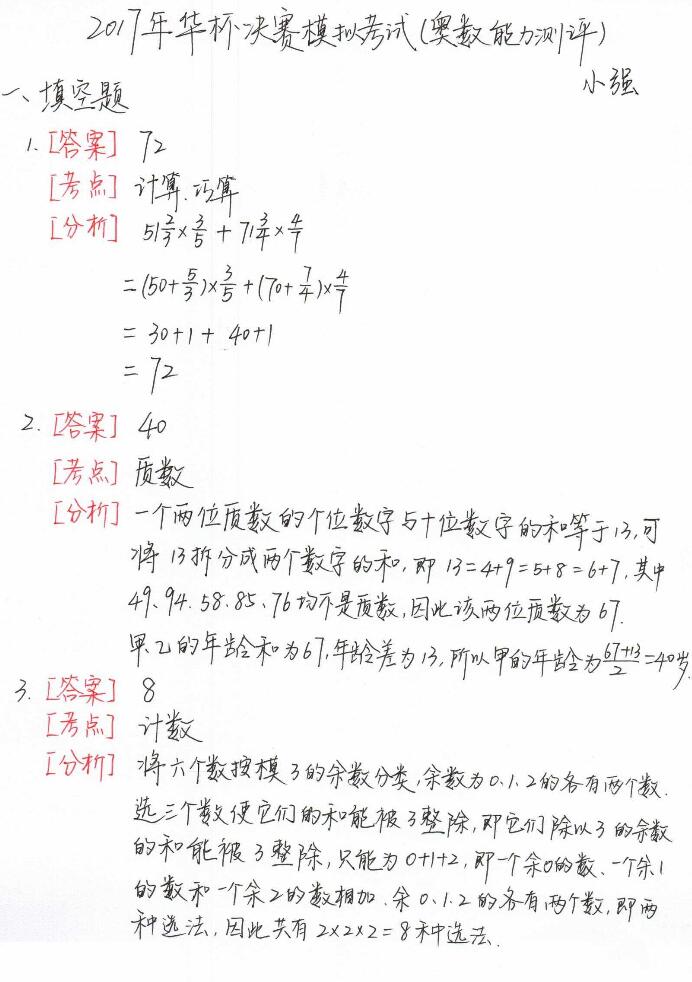 2017年华杯决赛模拟考试(奥数能力测评)
小强
一、填空题
1. [答案] 72
[考点] 计算、巧算
[分析] 51 2/3 × 3/5 + 71 3/4 × 4/7
= (50 + 5/3) × 3/5 + (70 + 7/4) × 4/7
= 30+1 + 40+1
= 72
2. [答案] 40
[考点] 质数
[分析] 一个两位质数的个位数字与十位数字的和等于13,可
将13拆分成两个数字的和,即 13=4+9=5+8=6+7,其中
49、94、58、85、76均不是质数,因此该两位质数为67.
甲、乙的年龄和为67,年龄差为13,所以甲的年龄为 (67+13)/2 = 40岁.
3. [答案] 8
[考点] 计数
[分析] 将六个数按模3的余数分类,余数为0、1、2的各有两个数.
选三个数使它们的和能被3整除,即它们除以3的余数
的和能被3整除,只能为0+1+2,即一个余0的数、一个余1
的数和一个余2的数相加.余0、1、2的各有两个数,即两
种选法,因此共有2×2×2=8种选法.